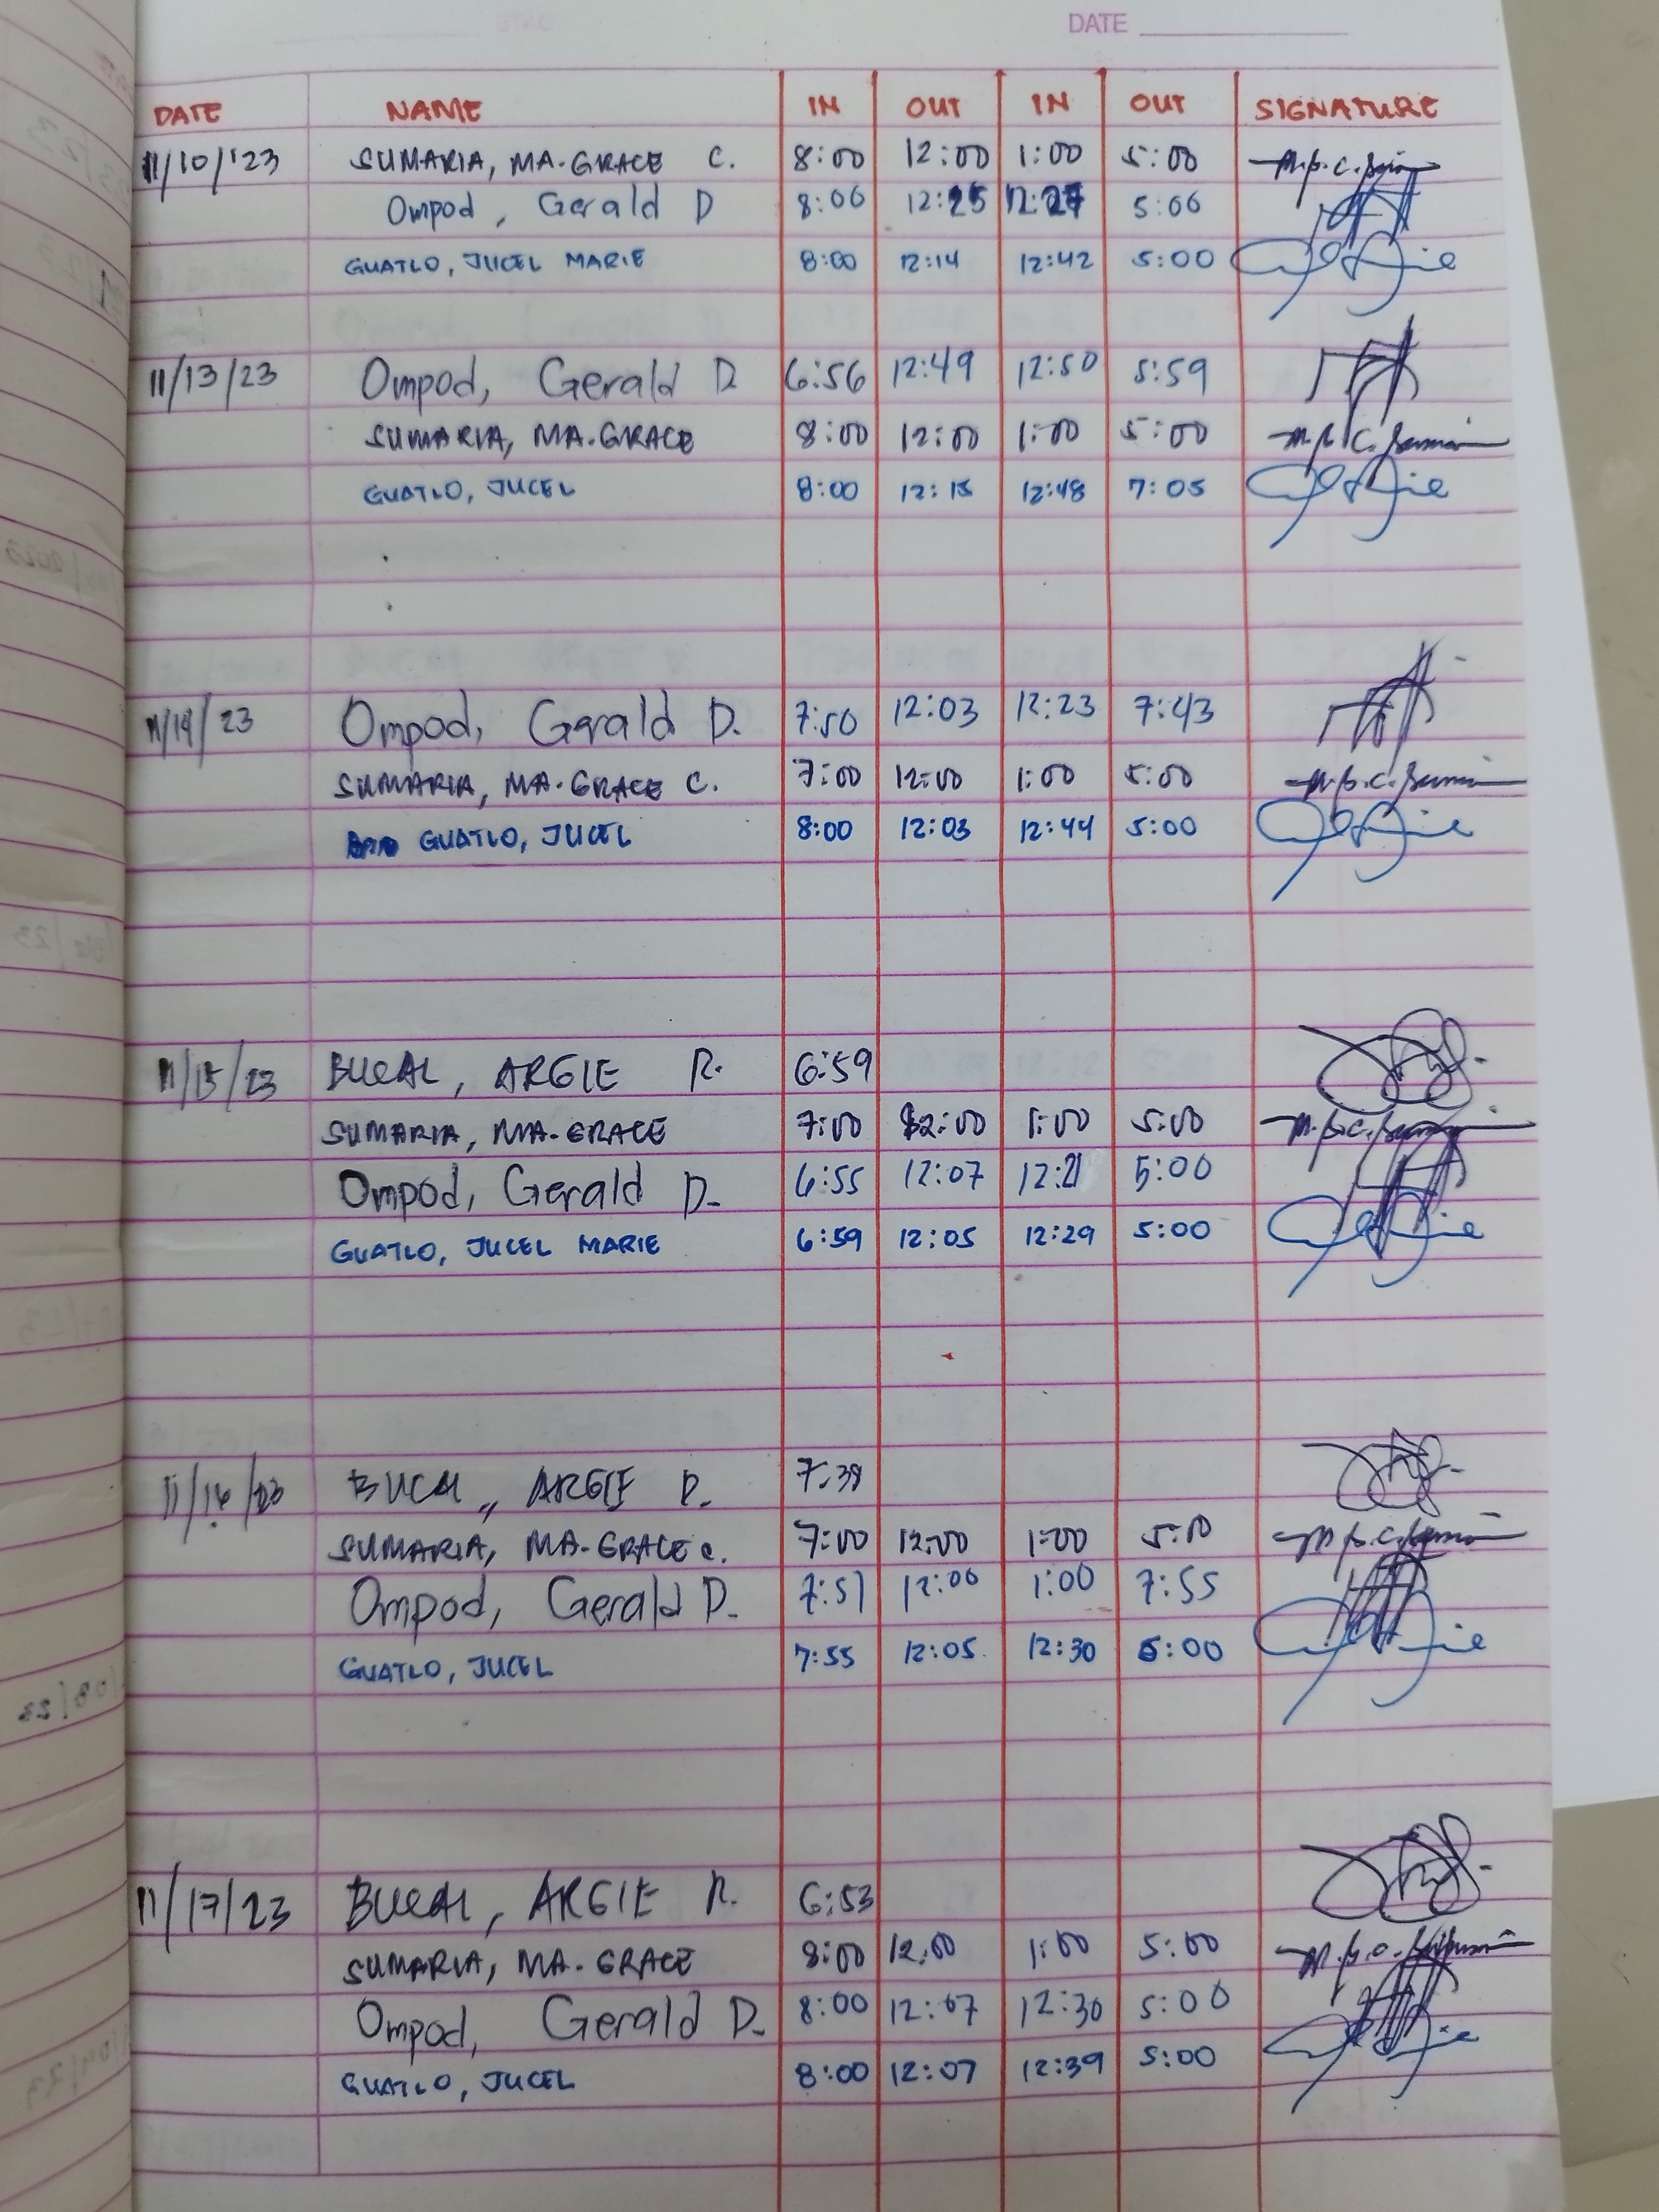 DATE
DATE NAME IN OUT IN OUT SIGNATURE
11/10/'23 SUMARIA, MA. GRACE C. 8:00 12:00 1:00 5:00
Ompod, Gerald D 8:06 12:25 12:27 5:06
GUATLO, JUCEL MARIE 8:00 12:14 12:42 5:00
11/13/23 Ompod, Gerald D. 6:56 12:49 12:50 5:59
SUMARIA, MA. GRACE 8:00 12:00 1:00 5:00
GUATLO, JUCEL 8:00 12:15 12:48 7:05
11/14/23 Ompod, Gerald D. 7:50 12:03 12:23 7:43
SUMARIA, MA. GRACE C. 7:00 12:00 1:00 5:00
GUATLO, JUCEL 8:00 12:03 12:44 5:00
11/15/23 BUCAL, ARGIE R. 6:59
SUMARIA, MA. GRACE 7:00 12:00 1:00 5:00
Ompod, Gerald D. 6:55 12:07 12:21 5:00
GUATLO, JUCEL MARIE 6:59 12:05 12:29 5:00
11/16/23 BUCAL, ARGIE R. 7:38
SUMARIA, MA. GRACE C. 7:00 12:00 1:00 5:00
Ompod, Gerald D. 7:51 12:06 1:00 7:55
GUATLO, JUCEL 7:55 12:05 12:30 5:00
11/17/23 BUCAL, ARGIE R. 6:53
SUMARIA, MA. GRACE 8:00 12:00 1:00 5:00
Ompod, Gerald D. 8:00 12:07 12:30 5:00
GUATLO, JUCEL 8:00 12:07 12:39 5:00